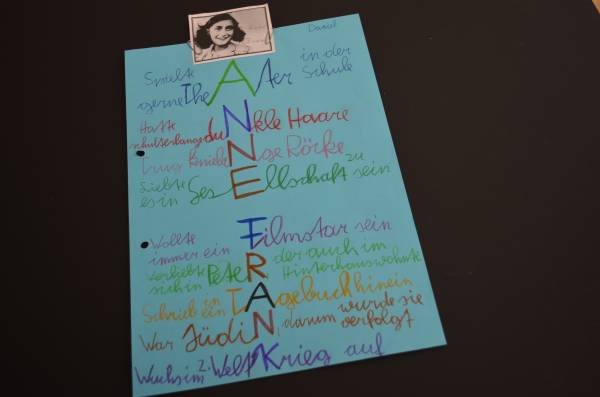 David
Spielte gerne TheAter in der Schule
Hatte schulterlange duNkle Haare
Trug knielaNge Röcke
Liebte es in GesEllschaft zu sein
Wollte immer ein Filmstar sein
verliebte sich in PeteR der auch im Hinterhaus wohnte
Schrieb in ein TAgebuch hinein
War JüdiN, darum wurde sie verfolgt
Wuchs im 2. WeltKrieg auf